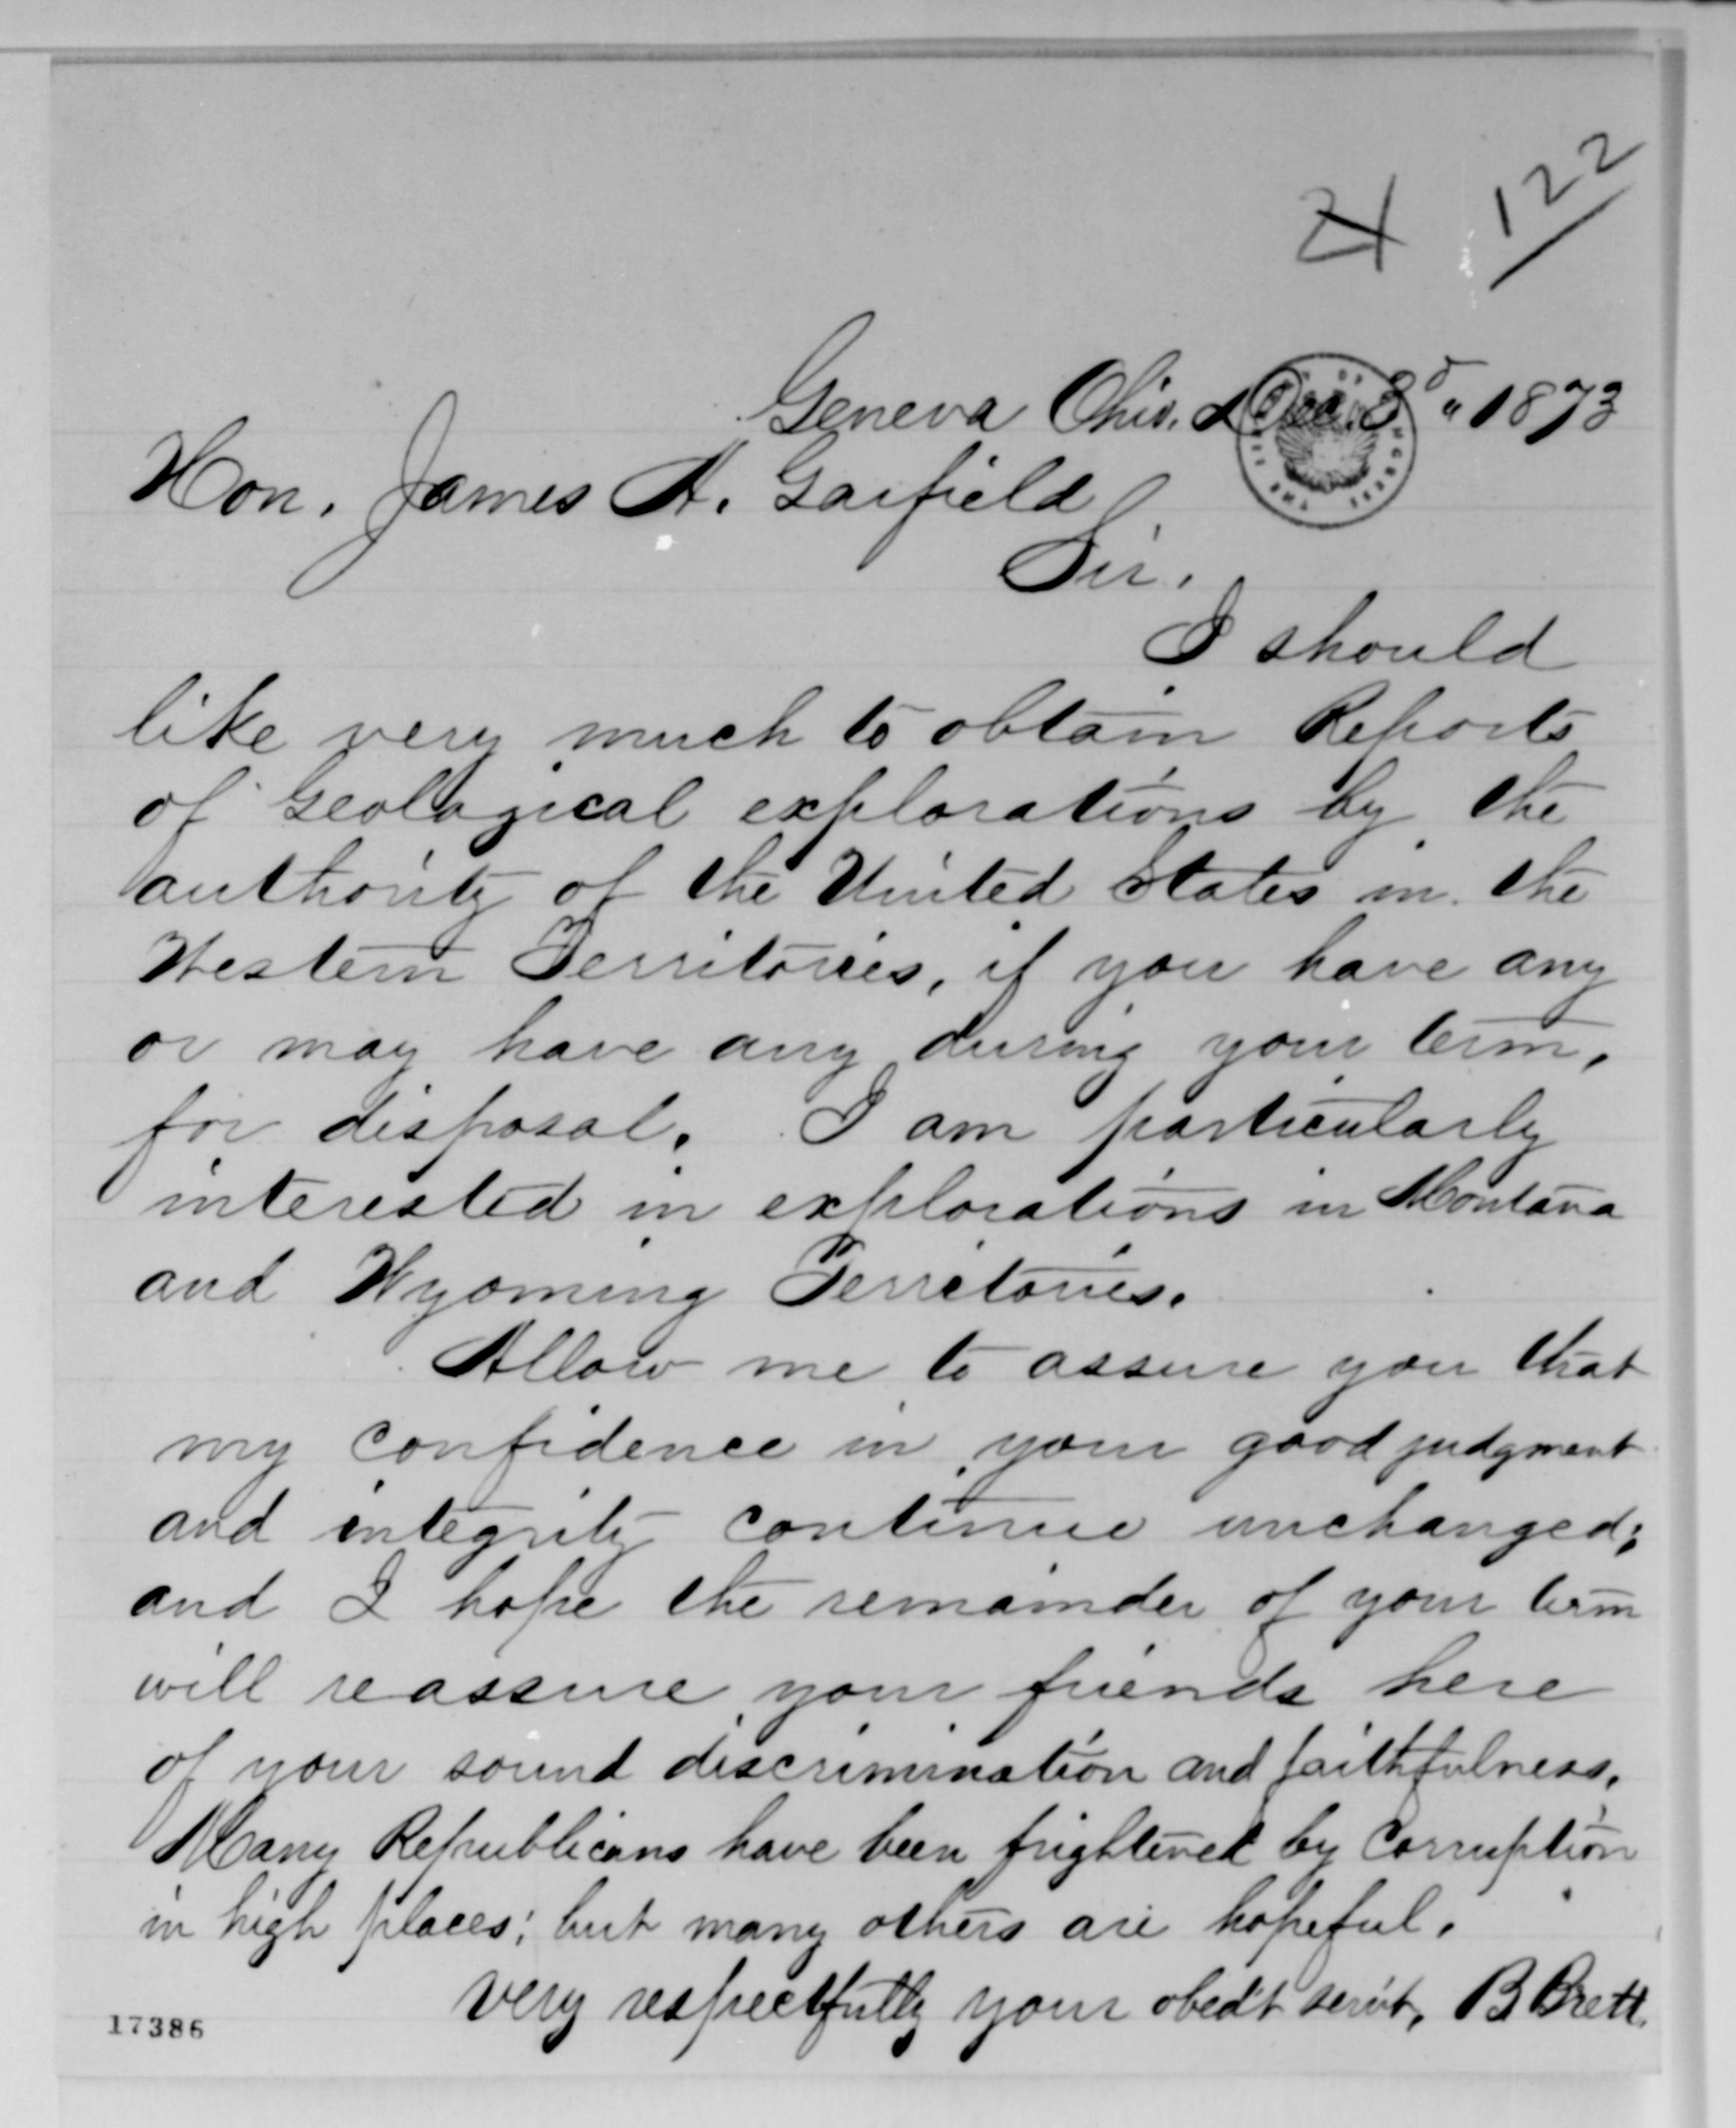 122
Geneva Ohio. Dec. 3d " 1873
Hon. James A. Garfield
Sir.
I should
like very much to obtain Reports
of Geological explorations by the
authority of the United States in the
Western Territories, if you have any
or may have any during your term,
for disposal. I am particularly
interested in explorations in Montana
and Wyoming Territories.
Allow me to assure you that
my confidence in your good judgment
and integrity continue unchanged;
and I hope the remainder of your term
will reassure your friends here
of your sound discrimination and faithfulness.
Many Republicans have been frightened by corruption
in high places; but many others are hopeful.
very respectfully your obed't serv't, B Brett.
17386